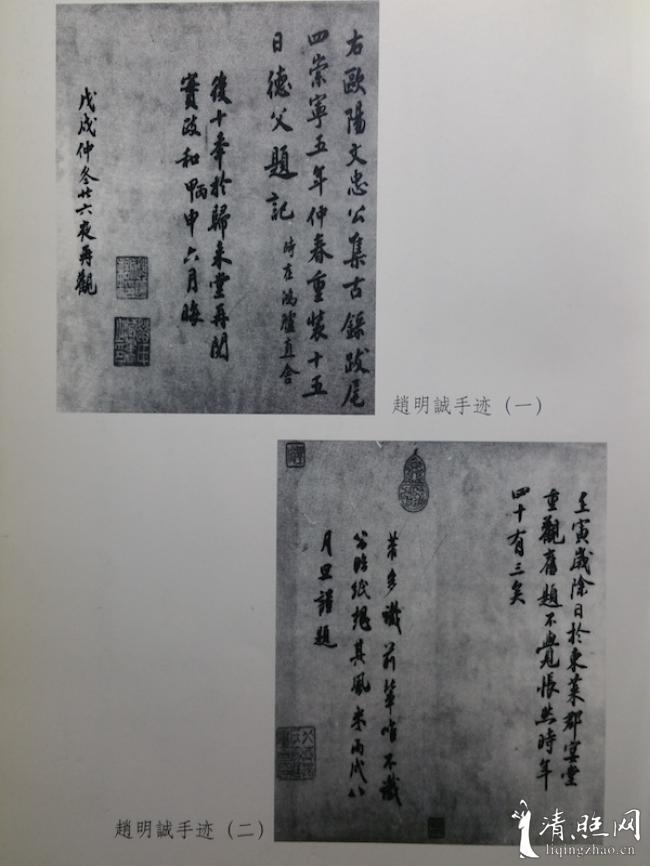 右歐陽文忠公集古錄跋尾
四崇寧五年仲春重裝十五
日德父題記 時在鴻臚直舍
後十年於歸來堂再閱
實政和甲丙申六月晦
戊戌仲冬廿六夜再觀
趙明誠手迹（一）
壬寅歲除日於東萊郡宴堂
重觀舊題不覺悵然時年
四十有三矣
芾多識前輩唯不識
公臨紙想其風采丙戌八
月旦謹題
趙明誠手迹（二）
清照网
liqingzhao.cn